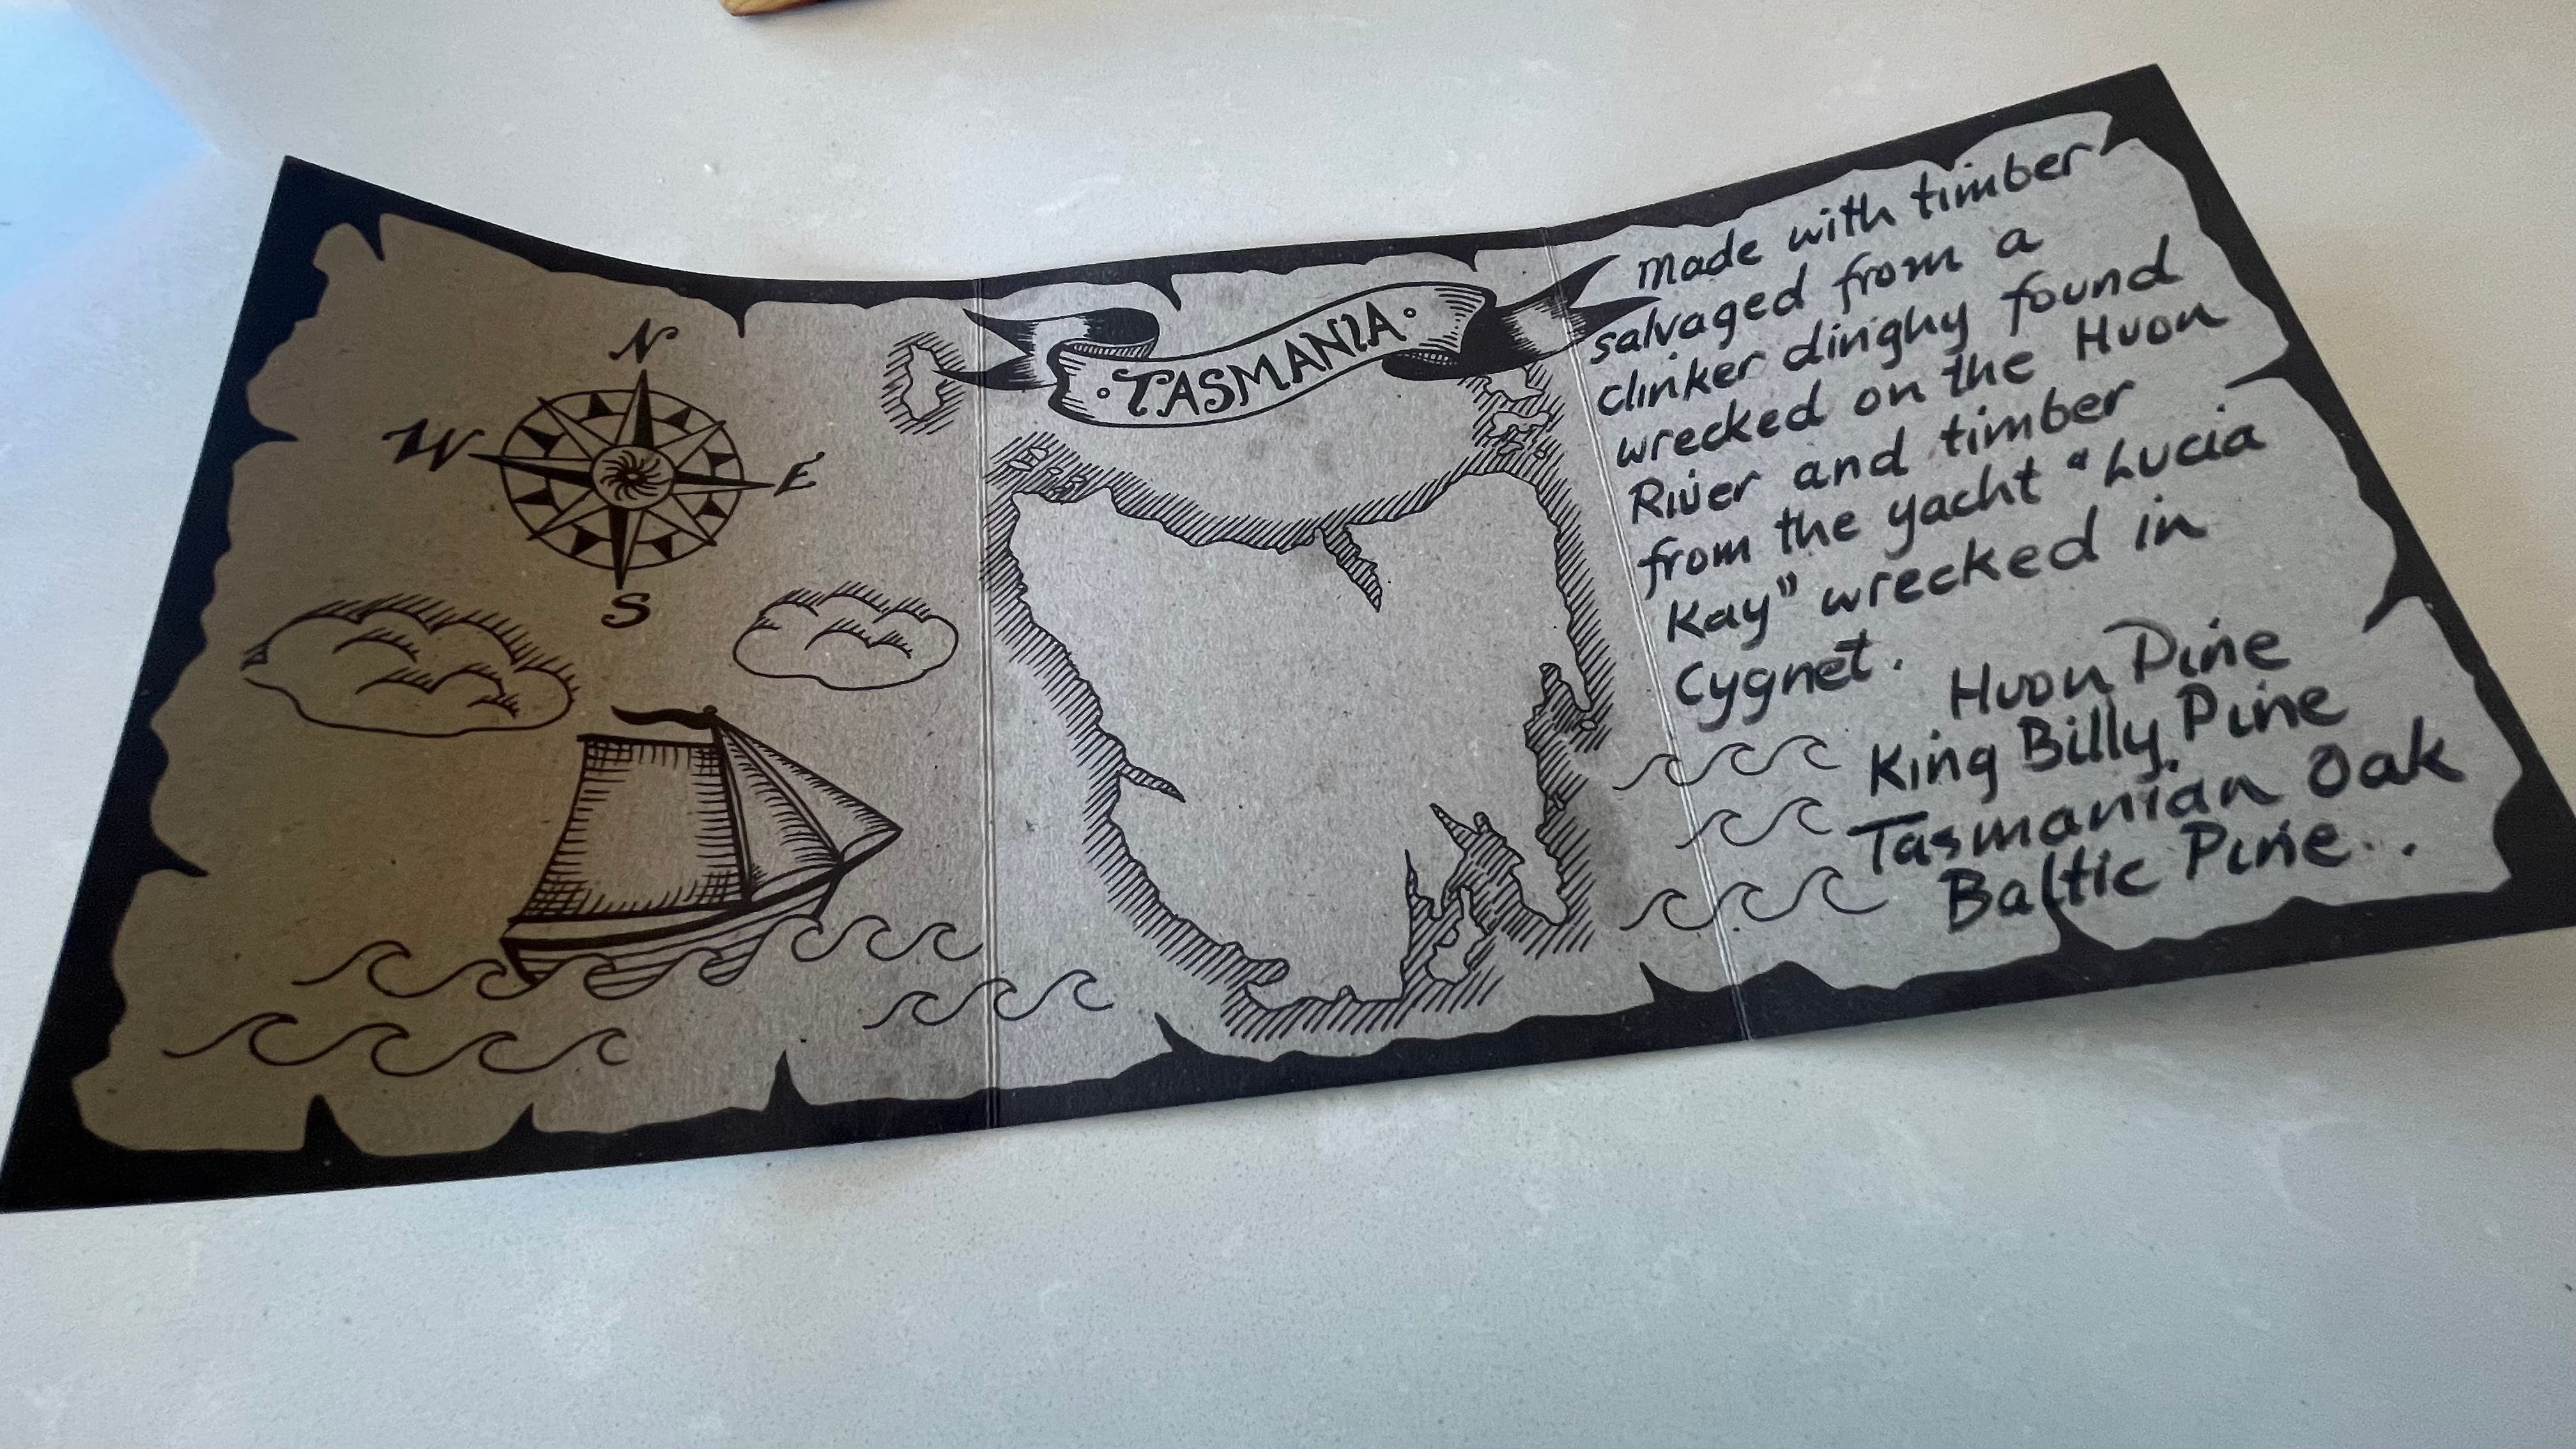 N
W
E
S
TASMANIA
Made with timber
salvaged from a
clinker dinghy found
wrecked on the Huon
River and timber
from the yacht "Lucia
Kay" wrecked in
Cygnet.
Huon Pine
King Billy Pine
Tasmanian Oak
Baltic Pine..